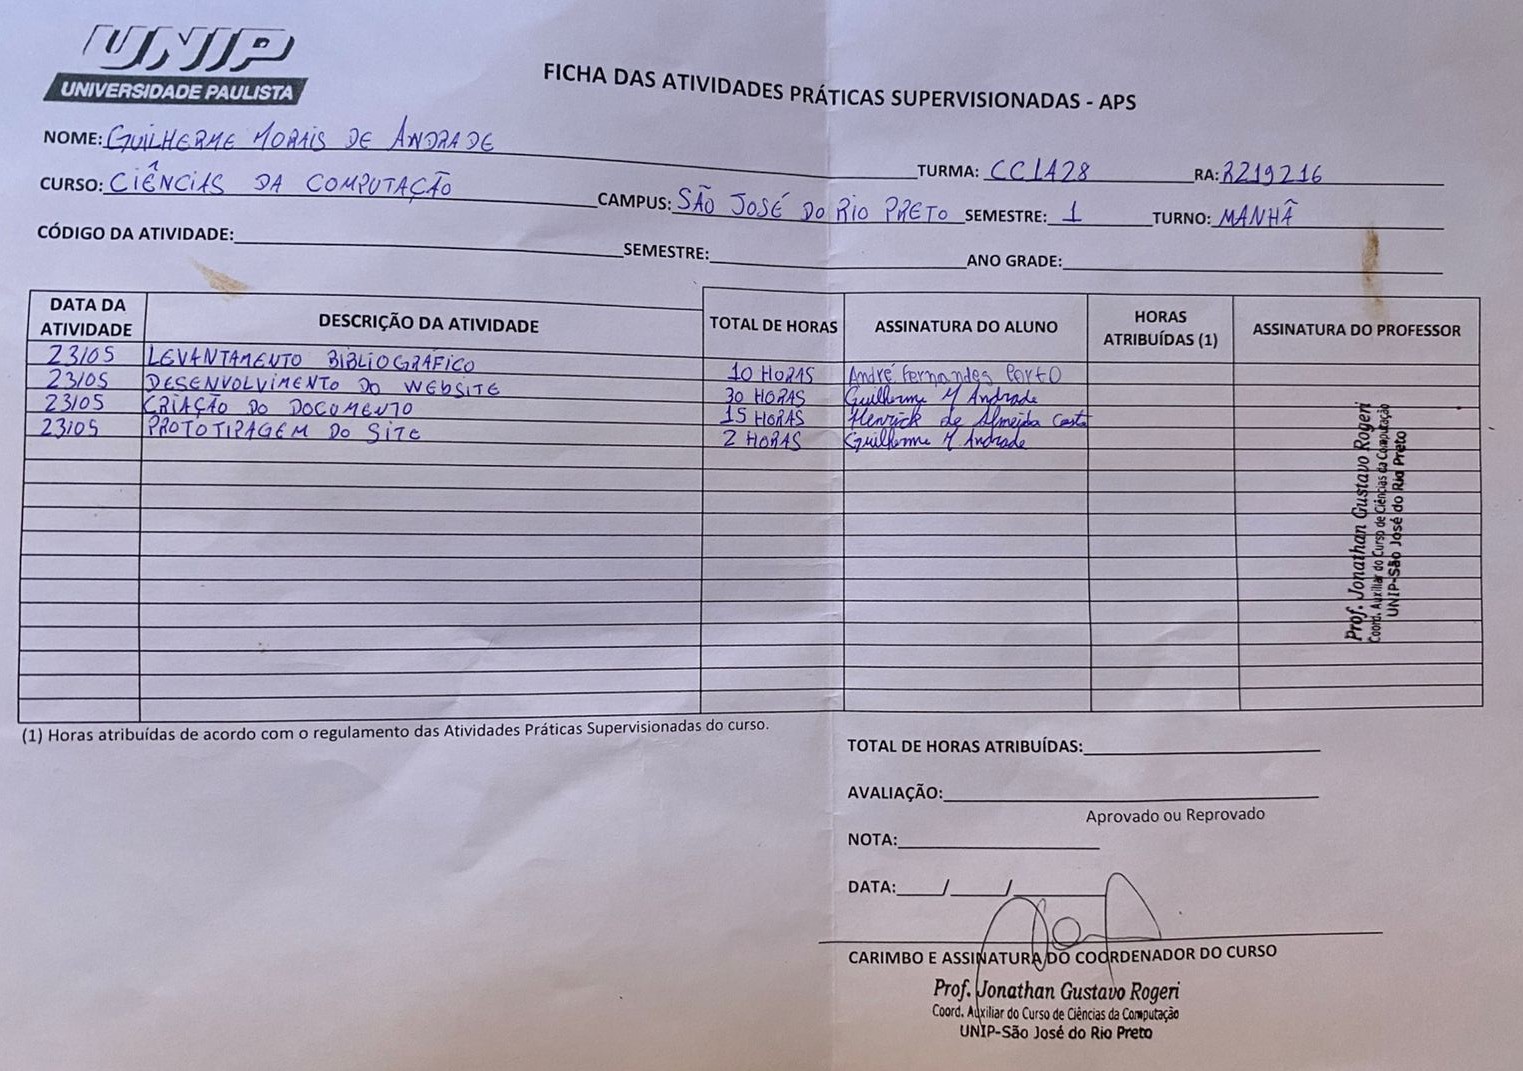 UNIP
UNIVERSIDADE PAULISTA
FICHA DAS ATIVIDADES PRÁTICAS SUPERVISIONADAS - APS
NOME: GUILHERME MORAIS DE ANDRADE
TURMA: CC1A28 RA: R219216
CURSO: CIÊNCIAS DA COMPUTAÇÃO CAMPUS: SÃO JOSÉ DO RIO PRETO SEMESTRE: 1 TURNO: MANHÃ
CÓDIGO DA ATIVIDADE: SEMESTRE: ANO GRADE:
DATA DA ATIVIDADE DESCRIÇÃO DA ATIVIDADE TOTAL DE HORAS ASSINATURA DO ALUNO HORAS ATRIBUÍDAS (1) ASSINATURA DO PROFESSOR
23/05 LEVANTAMENTO BIBLIOGRÁFICO 10 HORAS André Fernandes Porto
23/05 DESENVOLVIMENTO DO WEBSITE 30 HORAS Guilherme M Andrade
23/05 CRIAÇÃO DO DOCUMENTO 15 HORAS Henrick de Almeida Costa
23/05 PROTOTIPAGEM DO SITE 2 HORAS Guilherme M Andrade
Prof. Jonathan Gustavo Rogeri
Coord. Auxiliar do Curso de Ciências da Computação
UNIP-São José do Rio Preto
(1) Horas atribuídas de acordo com o regulamento das Atividades Práticas Supervisionadas do curso.
TOTAL DE HORAS ATRIBUÍDAS:
AVALIAÇÃO:
Aprovado ou Reprovado
NOTA:
DATA: / /
CARIMBO E ASSINATURA DO COORDENADOR DO CURSO
Prof. Jonathan Gustavo Rogeri
Coord. Auxiliar do Curso de Ciências da Computação
UNIP-São José do Rio Preto